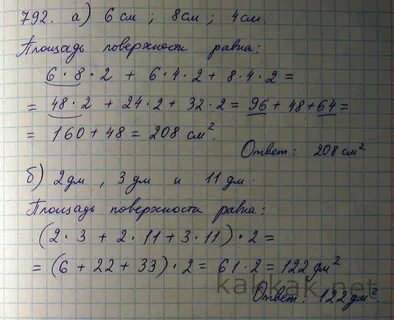 792. а) 6 см ; 8 см ; 4 см.
Площадь поверхности равна:
6·8·2 + 6·4·2 + 8·4·2 =
= 48·2 + 24·2 + 32·2 = 96 + 48 + 64 =
= 160 + 48 = 208 см².
Ответ: 208 см²
б) 2 дм, 3 дм и 11 дм.
Площадь поверхности равна:
(2·3 + 2·11 + 3·11)·2 =
= (6 + 22 + 33)·2 = 61·2 = 122 дм²
kakkak.net
Ответ: 122 дм²